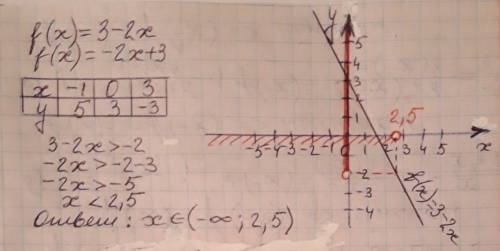 f(x)=3-2x
f(x)=-2x+3
x -1 0 3
y 5 3 -3
3-2x>-2
-2x>-2-3
-2x>-5
x<2,5
Ответ: x∈(-∞; 2,5)
y
5
4
3
2
1
2,5
-5 -4 -3 -2 -1 1 2 3 4 5
x
-2
-3
-4
f(x)=3-2x